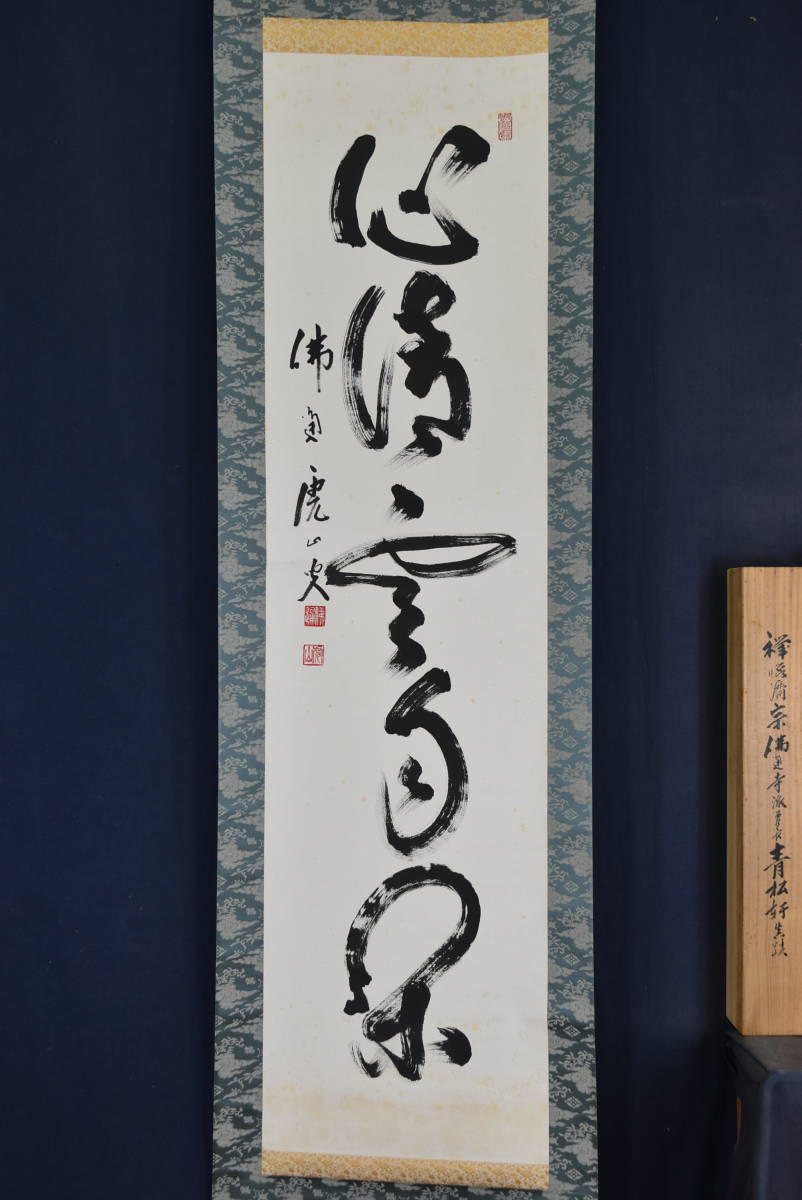 心清意自閑
佛通 虎山叟
禅臨済宗佛通寺派管長青松軒真蹟